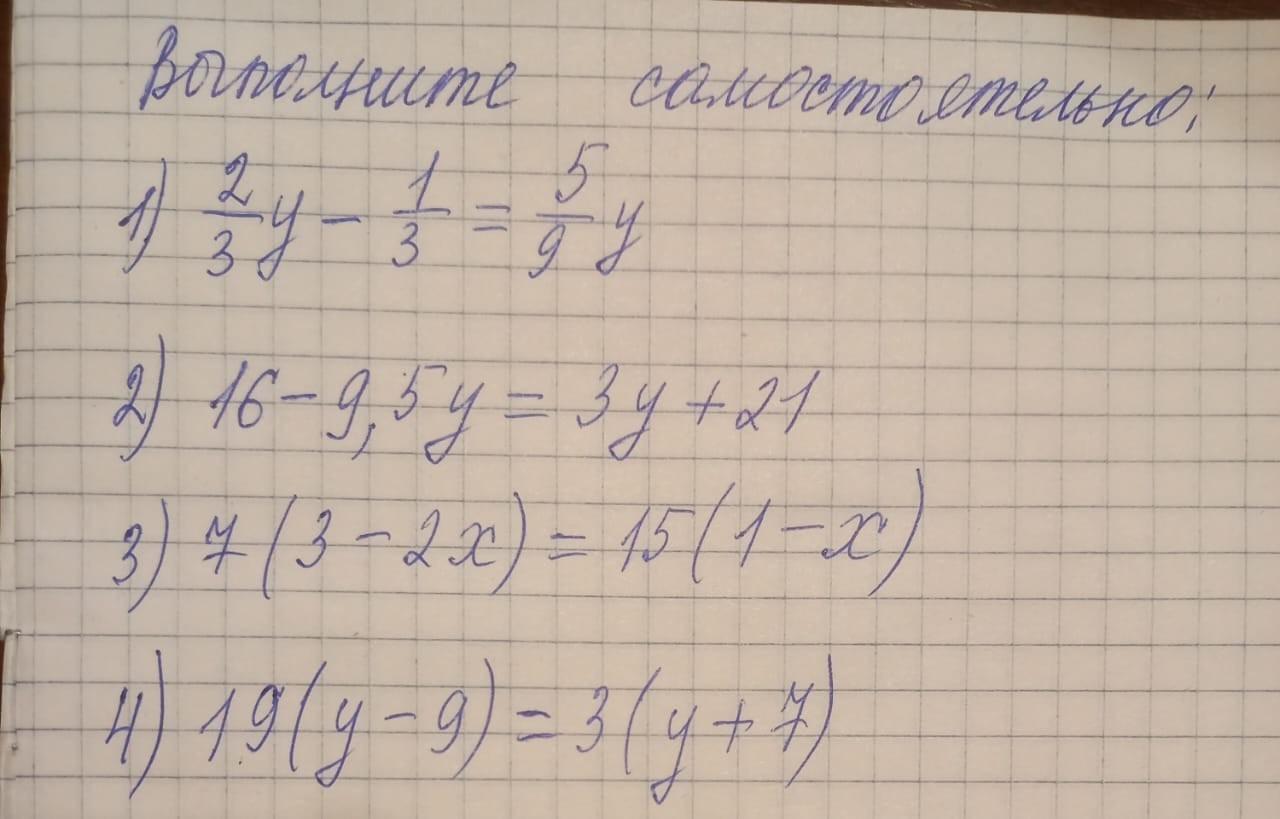 Выполните самостоятельно:
1) 2/3 y - 1/3 = 5/9 y
2) 16 - 9,5y = 3y + 21
3) 7(3 - 2x) = 15(1 - x)
4) 19(y - 9) = 3(y + 7)